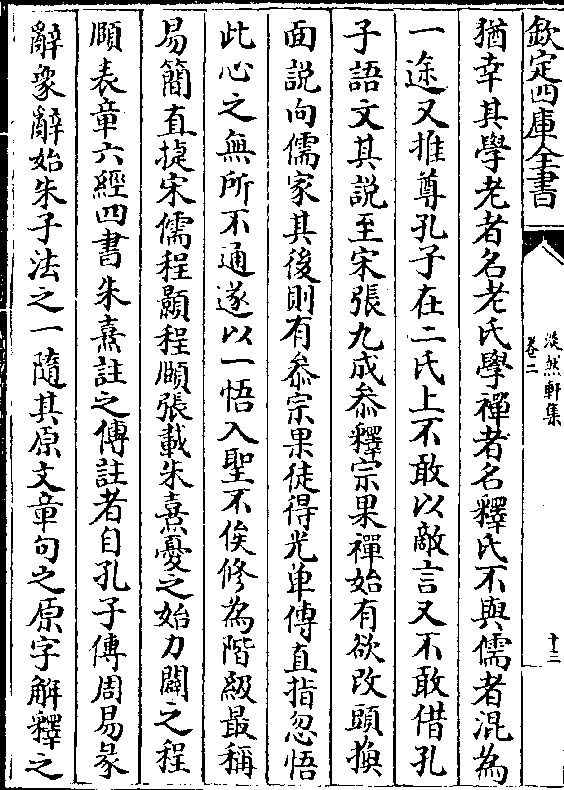 欽定四庫全書
淡然軒集
卷二
十三
猶幸其學老者名老氏學禪者名釋氏不與儒者混為
一途又推尊孔子在二氏上不敢以敵言又不敢借孔
子語文其說至宋張九成叅釋宗果禪始有欲改頭換
面説向儒家其後則有叅宗果徒得光单傳直指忽悟
此心之無所不通遂以一悟入聖不俟修為階級最稱
易簡直捷宋儒程顥程頥張載朱熹憂之始力闢之程
頥表章六經四書朱熹註之傳註者自孔子傳周易彖
辭象辭始朱子法之一隨其原文章句之原字解釋之